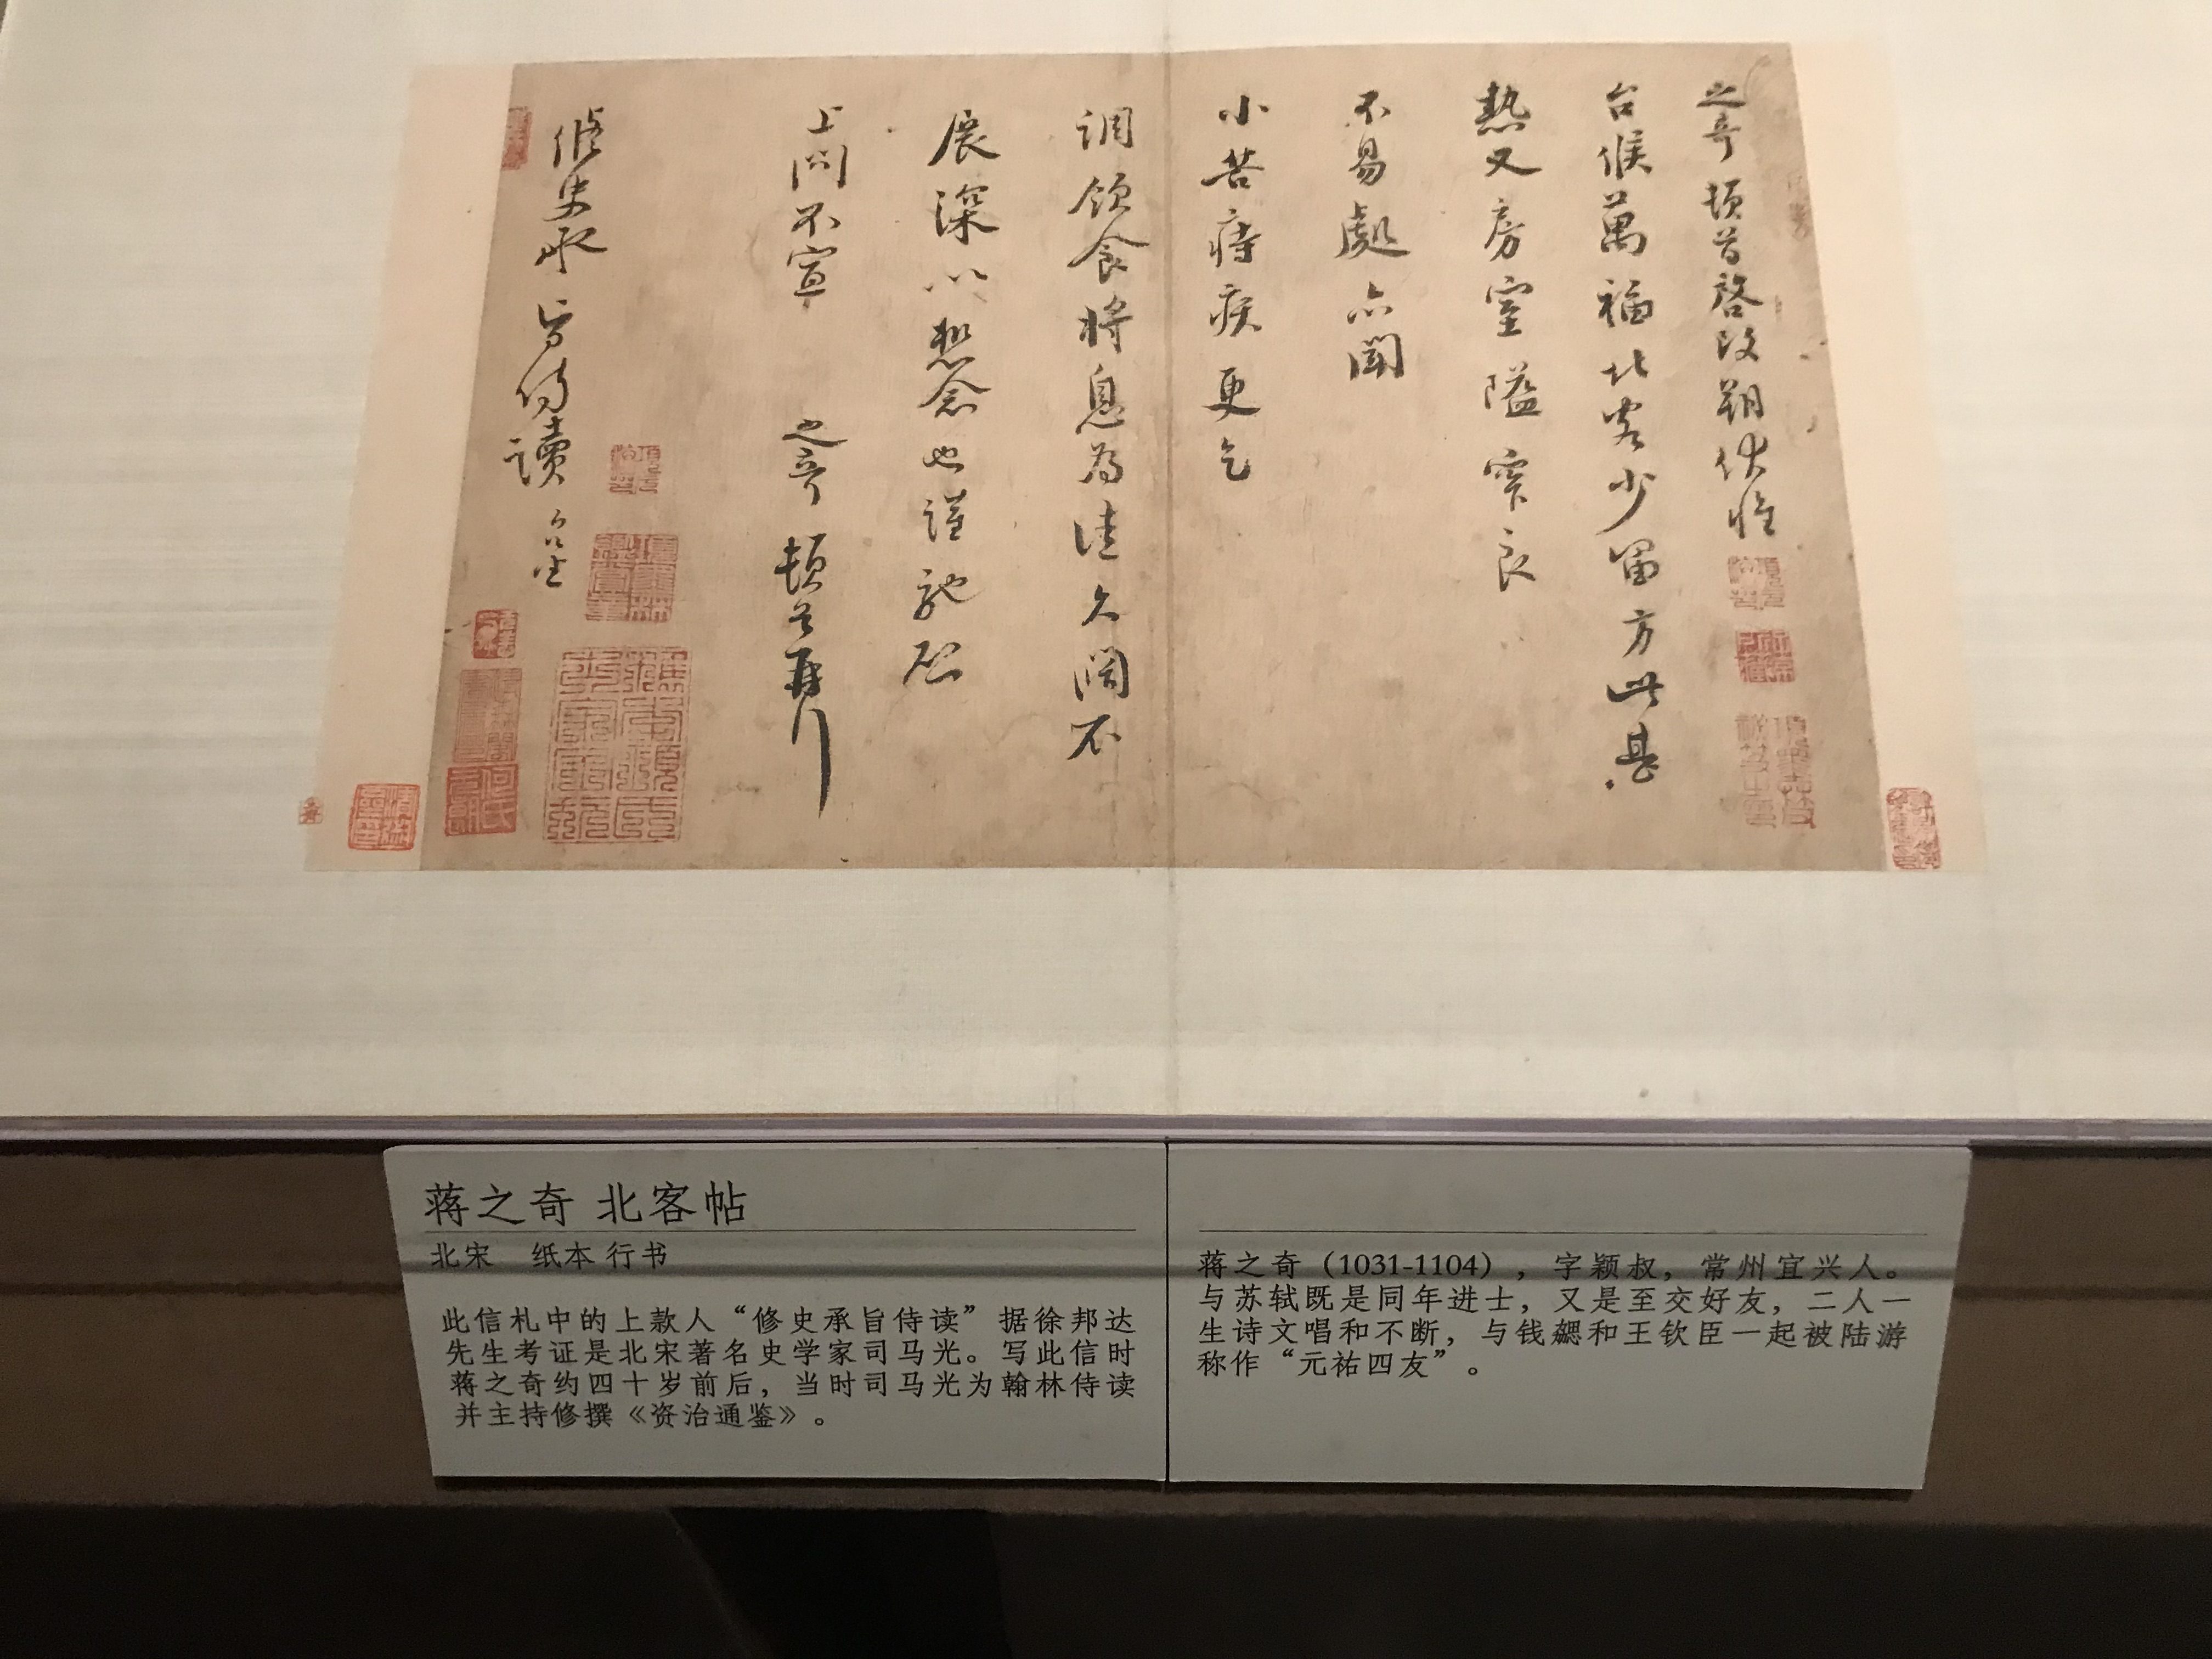 之奇頓首啓改朔伏惟
台候萬福北客少留方此甚
熱又房室隘窄良
不易處亦聞
小苦痔疾更乞
調飲食將息為佳久闊不
展深以愁念也謹馳啓
上問不宣 之奇頓首再行
修史承旨侍讀台坐
蒋之奇 北客帖
北宋 纸本 行书
此信札中的上款人“修史承旨侍读”据徐邦达
先生考证是北宋著名史学家司马光。写此信时
蒋之奇约四十岁前后，当时司马光为翰林侍读
并主持修撰《资治通鉴》。
蒋之奇（1031-1104），字颖叔，常州宜兴人。
与苏轼既是同年进士，又是至交好友，二人一
生诗文唱和不断，与钱勰和王钦臣一起被陆游
称作“元祐四友”。